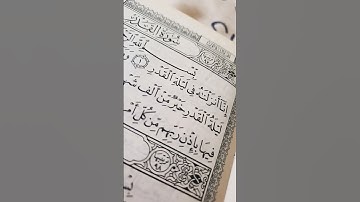 سُورَةُ الْقَدْرِ
إِنَّا أَنْزَلْنَاهُ فِي لَيْلَةِ الْقَدْرِ ١
لَيْلَةُ الْقَدْرِ خَيْرٌ مِنْ أَلْفِ شَهْ
فِيهَا بِإِذْنِ رَبِّهِمْ مِنْ كُلِّ أَمْ